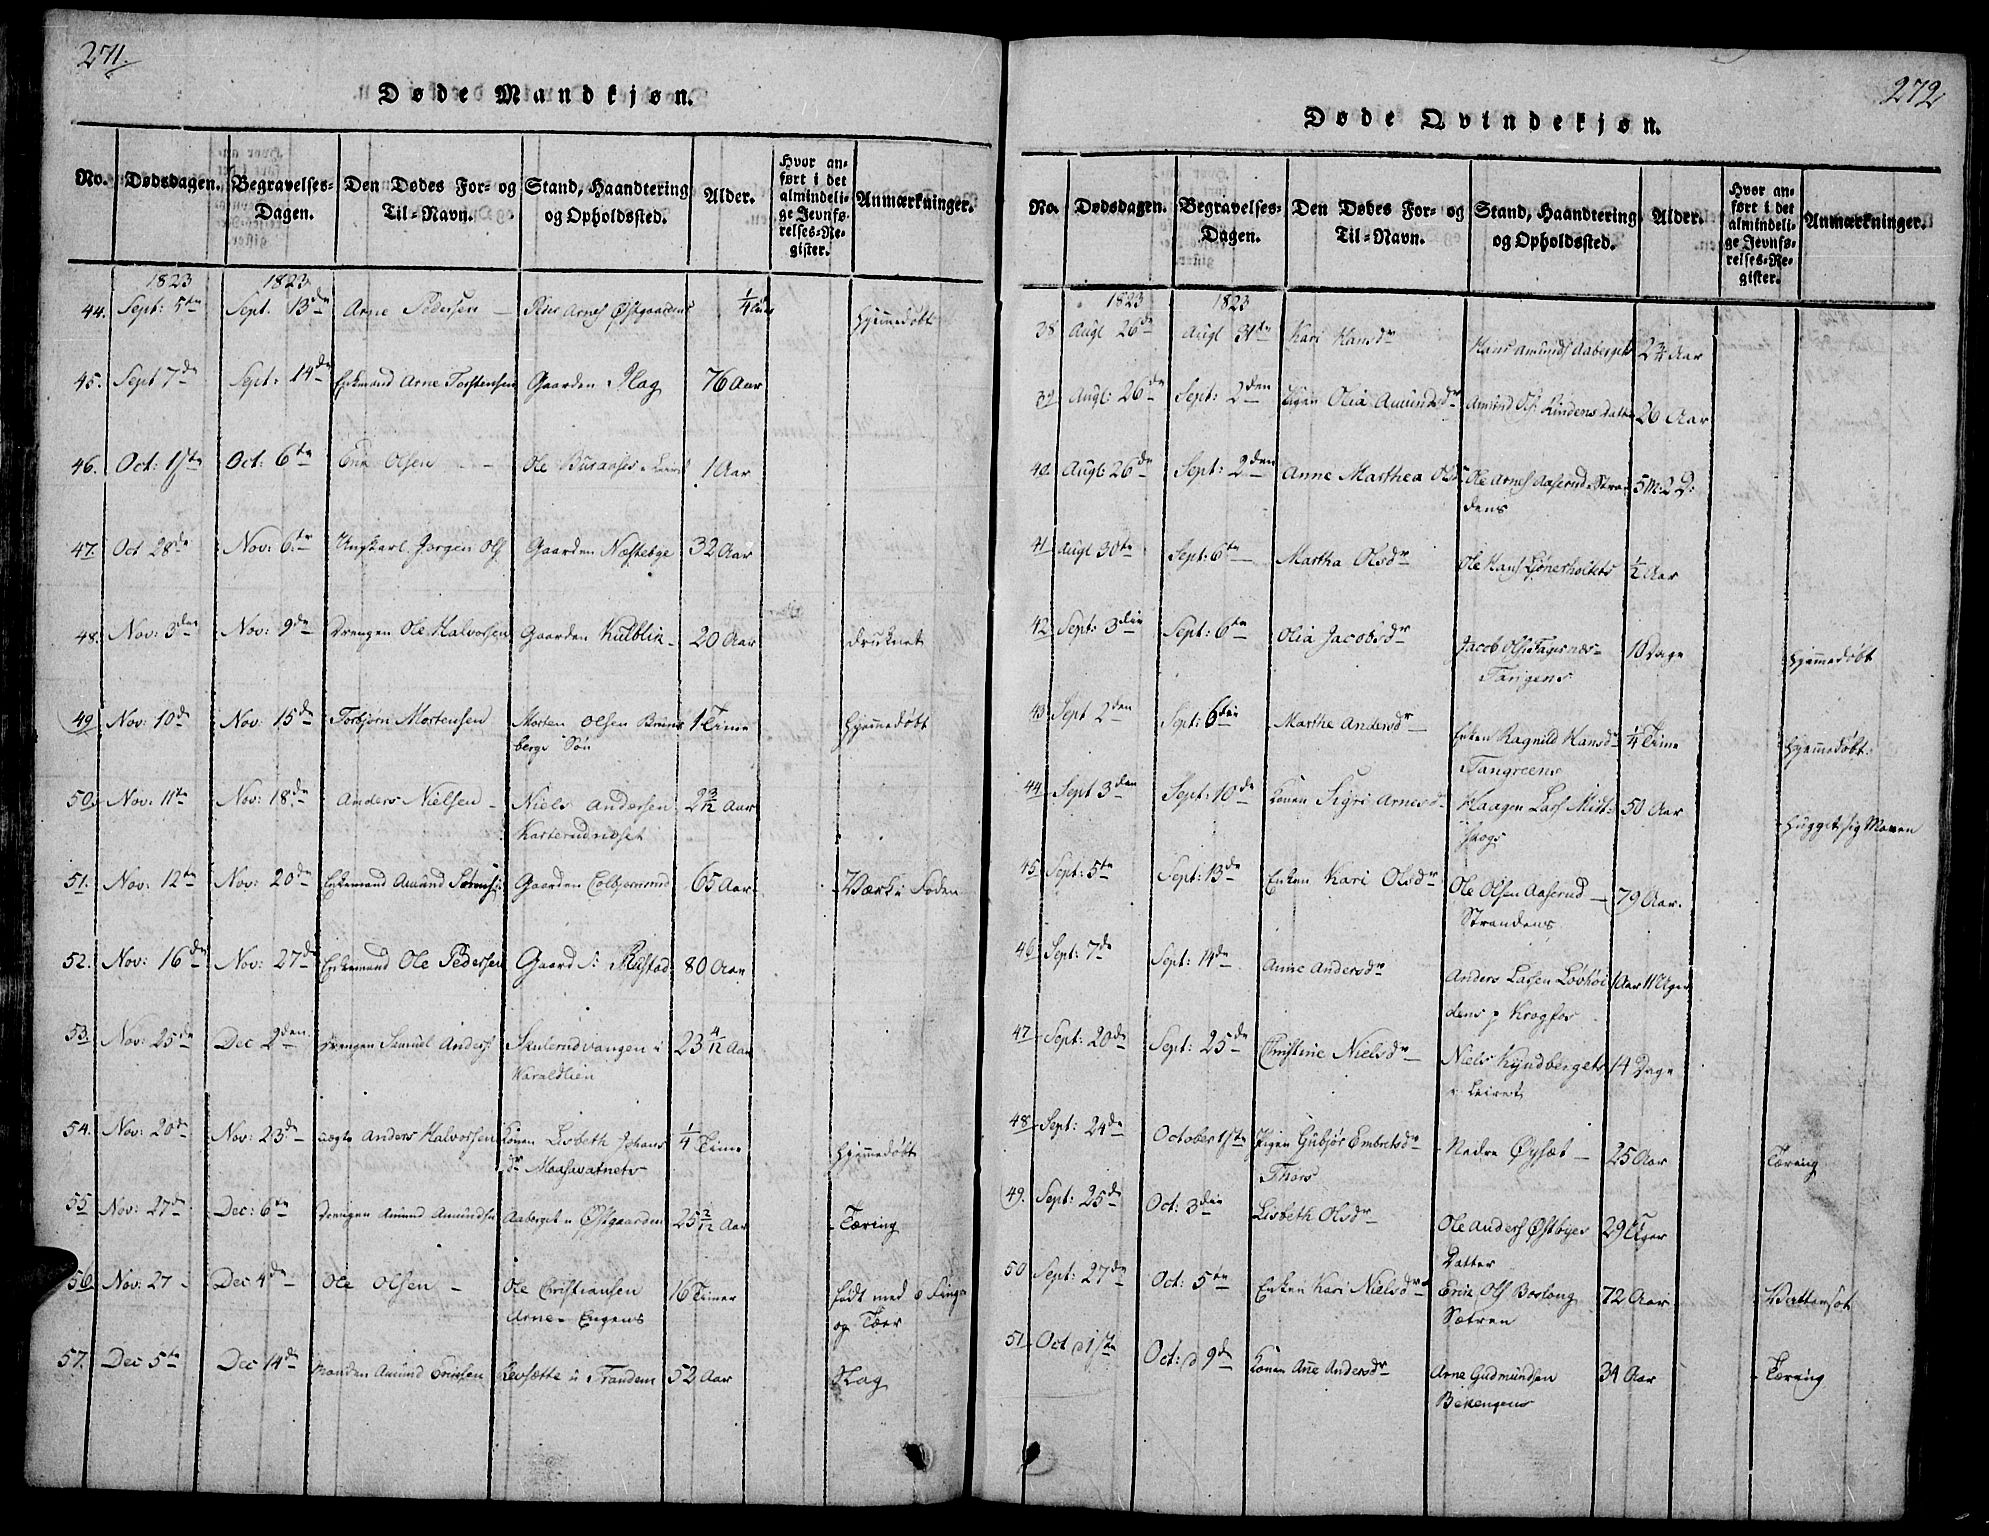 271.
Døde Mandkjøn.
No. Dødsdagen. Begravelses-Dagen. Den Dødes For- og Til-Navn. Stand, Haandtering og Opholdssted. Alder. Hvor anført i det almindelige Jevnførelses-Register. Anmærkninger.
1823 1823
44. Sept: 5te Sept. 13de Arne Pedersen Peder Arnes Østgaardens 1/4 Aar Hjemmedøbt
45. Sept 7de Sept: 14de Enkemand Arne Torstensen Gaarden 76 Aar
46. Oct: 1ste Oct: 6te Olsen Ole 1 Aar
47. Oct 28de Nov: 6te Ungkarl Jørgen Ols Gaarden Næstebye 32 Aar
48. Nov: 3den Nov: 9de Drengen Ole Halvorsen Gaarden Kulblik 20 Aar druknet
49 Nov: 10de Nov: 15de Torbjørn Mortensen Morten Olsen Bruns 1 Time Hjemmedøbt
bergs Søn
50. Nov: 11te Nov: 18de Anders Nielsen Niels Andersen 2 3/12 Aar
51. Nov: 12te Nov: 20de Enkemand Amund Gaarden 65 Aar Værk i
52. Nov: 16de Nov: 27de Enkemand Ole Pedersen Gaard 80 Aar
53. Nov: 25de Dec 2den Drengen Samuel Anders Skulerudvangen i 23 4/12 Aar
Haraldlien
54. Nov: 20de Nov: 23de uægte Anders Halvorsen Konen Lisbeth Johans 1/4 Time Hjemmedøbt
dr
55 Nov: 27de Dec: 6te Drengen Amund Amundsen Aaberget u Østgaarden 25 2/12 Aar Tæring
56. Nov: 27 Dec 4de Ole Olsen Ole Christiansen 16 Timer født med 6 Fingre
Arne- Engens og Tæer
57. Dec 5te Dec 14de Manden Amund 52 Aar Slag
272
Døde Qvindekjøn.
No. Dødsdagen. Begravelses-Dagen. Den Dødes For- og Til-Navn. Stand, Haandtering og Opholdssted. Alder. Hvor anført i det almindelige Jevnførelses-Register. Anmærkninger.
1823 1823
38 Augl 26de Augl 31te Kari Hansdr Hans Amunds Aaberget Aar
39 Augl: 26de Sept: 2den Pigen Olia Amundsdr Amund Ols Lindens Datter 26 Aar
40 Augl 26de Sept: 2den Anne Marthea Ols Ole Arnes Aaserud Stran 5 M: 2 D:
dens
41 Augl 30te Sept: 6te Martha Olsdr Ole Hans 1/2 Aar
42 Sept: 3die Sept: 6te Olia Jacobsdr Jacob Ols 10 Dage Hjemmedøbt
Tangens
43 Sept 2den Sept: 6die Marthe Andersdr Enken Ragnild Hansdr 1/4 Time Hjemmedøbt
Tangreens
44 Sept 3den Sept: 10de Konen Sigri Arnesd Haagen Lars Midt 50 Aar
skogs
45. Sept: 5te Sept: 13de Enken Kari Olsdr Ole Olsen Aaserud 79 Aar.
Strandens
46 Sept: 7de Sept: 14de Anne Andersdr Anders Larsen 1 Aar 11 Uger
47 Sept: 20de Sept: 25de Christine Nielsdr Niels Kyndberget 14 Dage
i Leiret
48 Sept: 24de October 1ste Pigen Gubjør Embretsdr Nedre Øysæt 25 Aar Tæring
Thors
49. Sept: 25de Oct: 3die Lisbeth Olsdr Ole Anders Østbyes 29 Uger
Datter
50 Sept: 27de Oct: 5te Enken Kari Nielsdr Ols 72 Aar Vattersot
Sætren
51. Oct 1ste Oct: 9de Konen Ane Andersdr Arne Gudmundsen 34 Aar Tæring